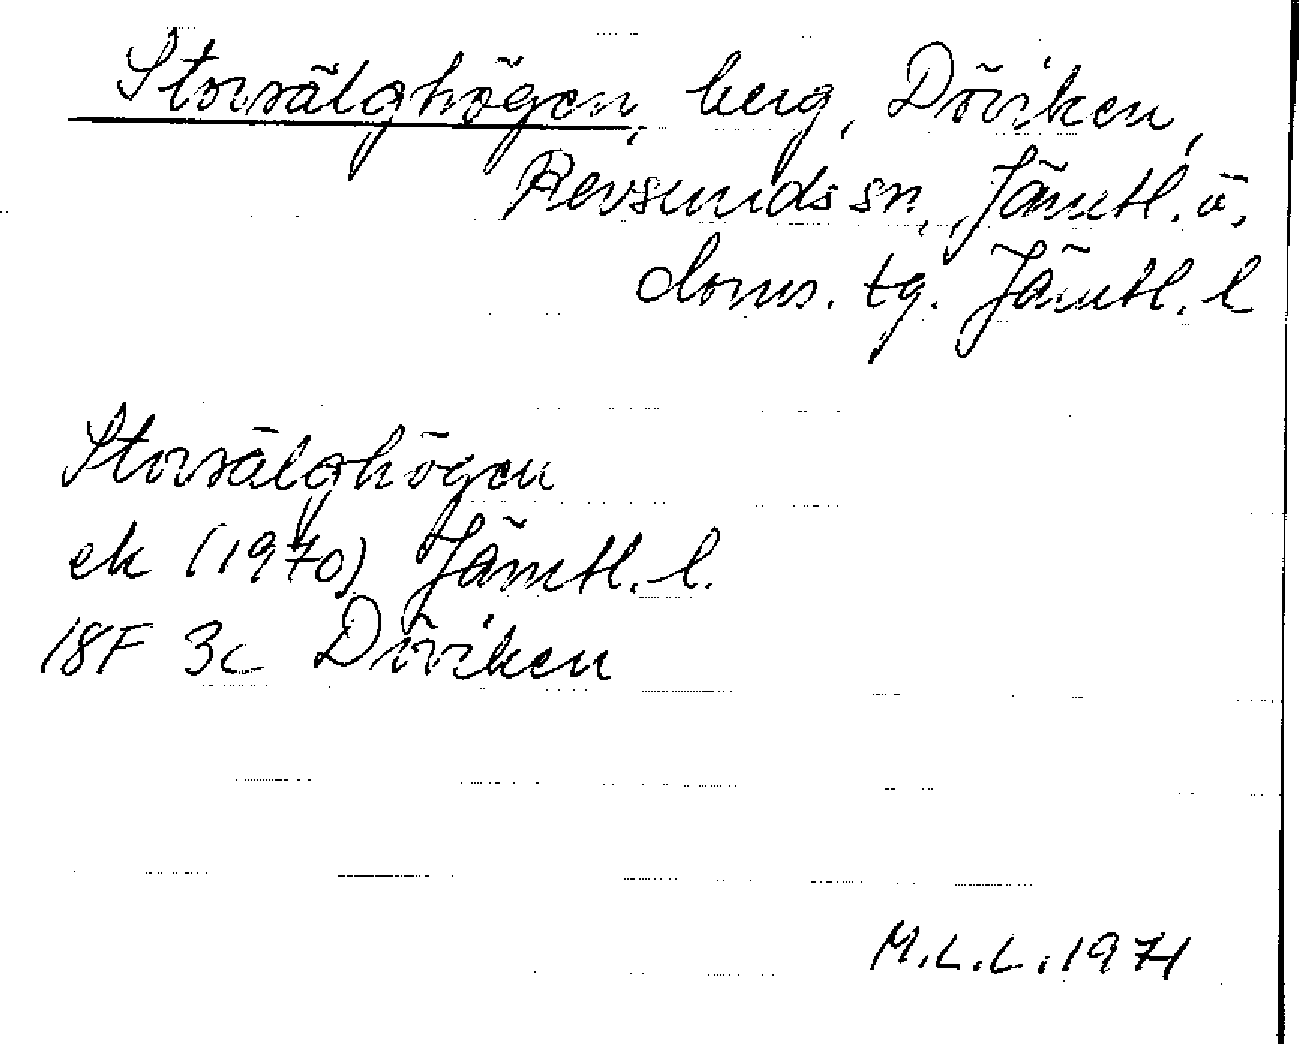 Storsälghögen, berg, Döviken,
Revsunds sn, Jämtl. ö.
doms. tg. Jämtl. l
Storsälghögen
ek (1970) Jämtl. l.
18F 3c Döviken
M.L.L. 1971